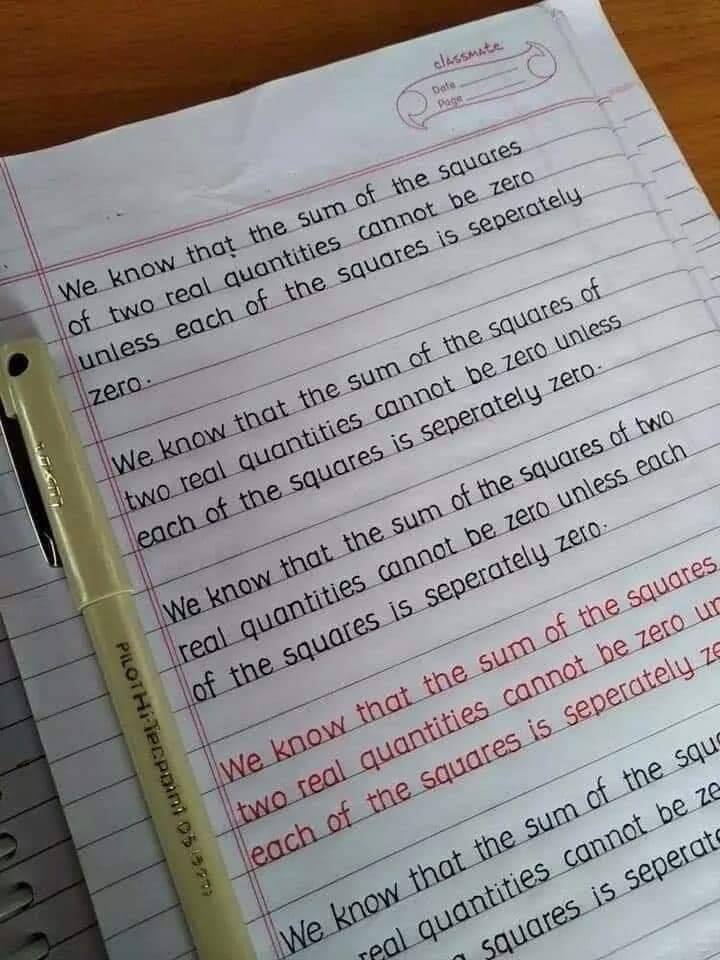 classmate
Date
Page
We know that the sum of the squares
of two real quantities cannot be zero
unless each of the squares is seperately
zero.
We know that the sum of the squares of
two real quantities cannot be zero unless
each of the squares is seperately zero.
We know that the sum of the squares of two
real quantities cannot be zero unless each
of the squares is seperately zero.
We know that the sum of the squares
two real quantities cannot be zero un
each of the squares is seperately ze
We know that the sum of the squa
real quantities cannot be ze
squares is seperate
PILOT Hi-Tecpoint 05